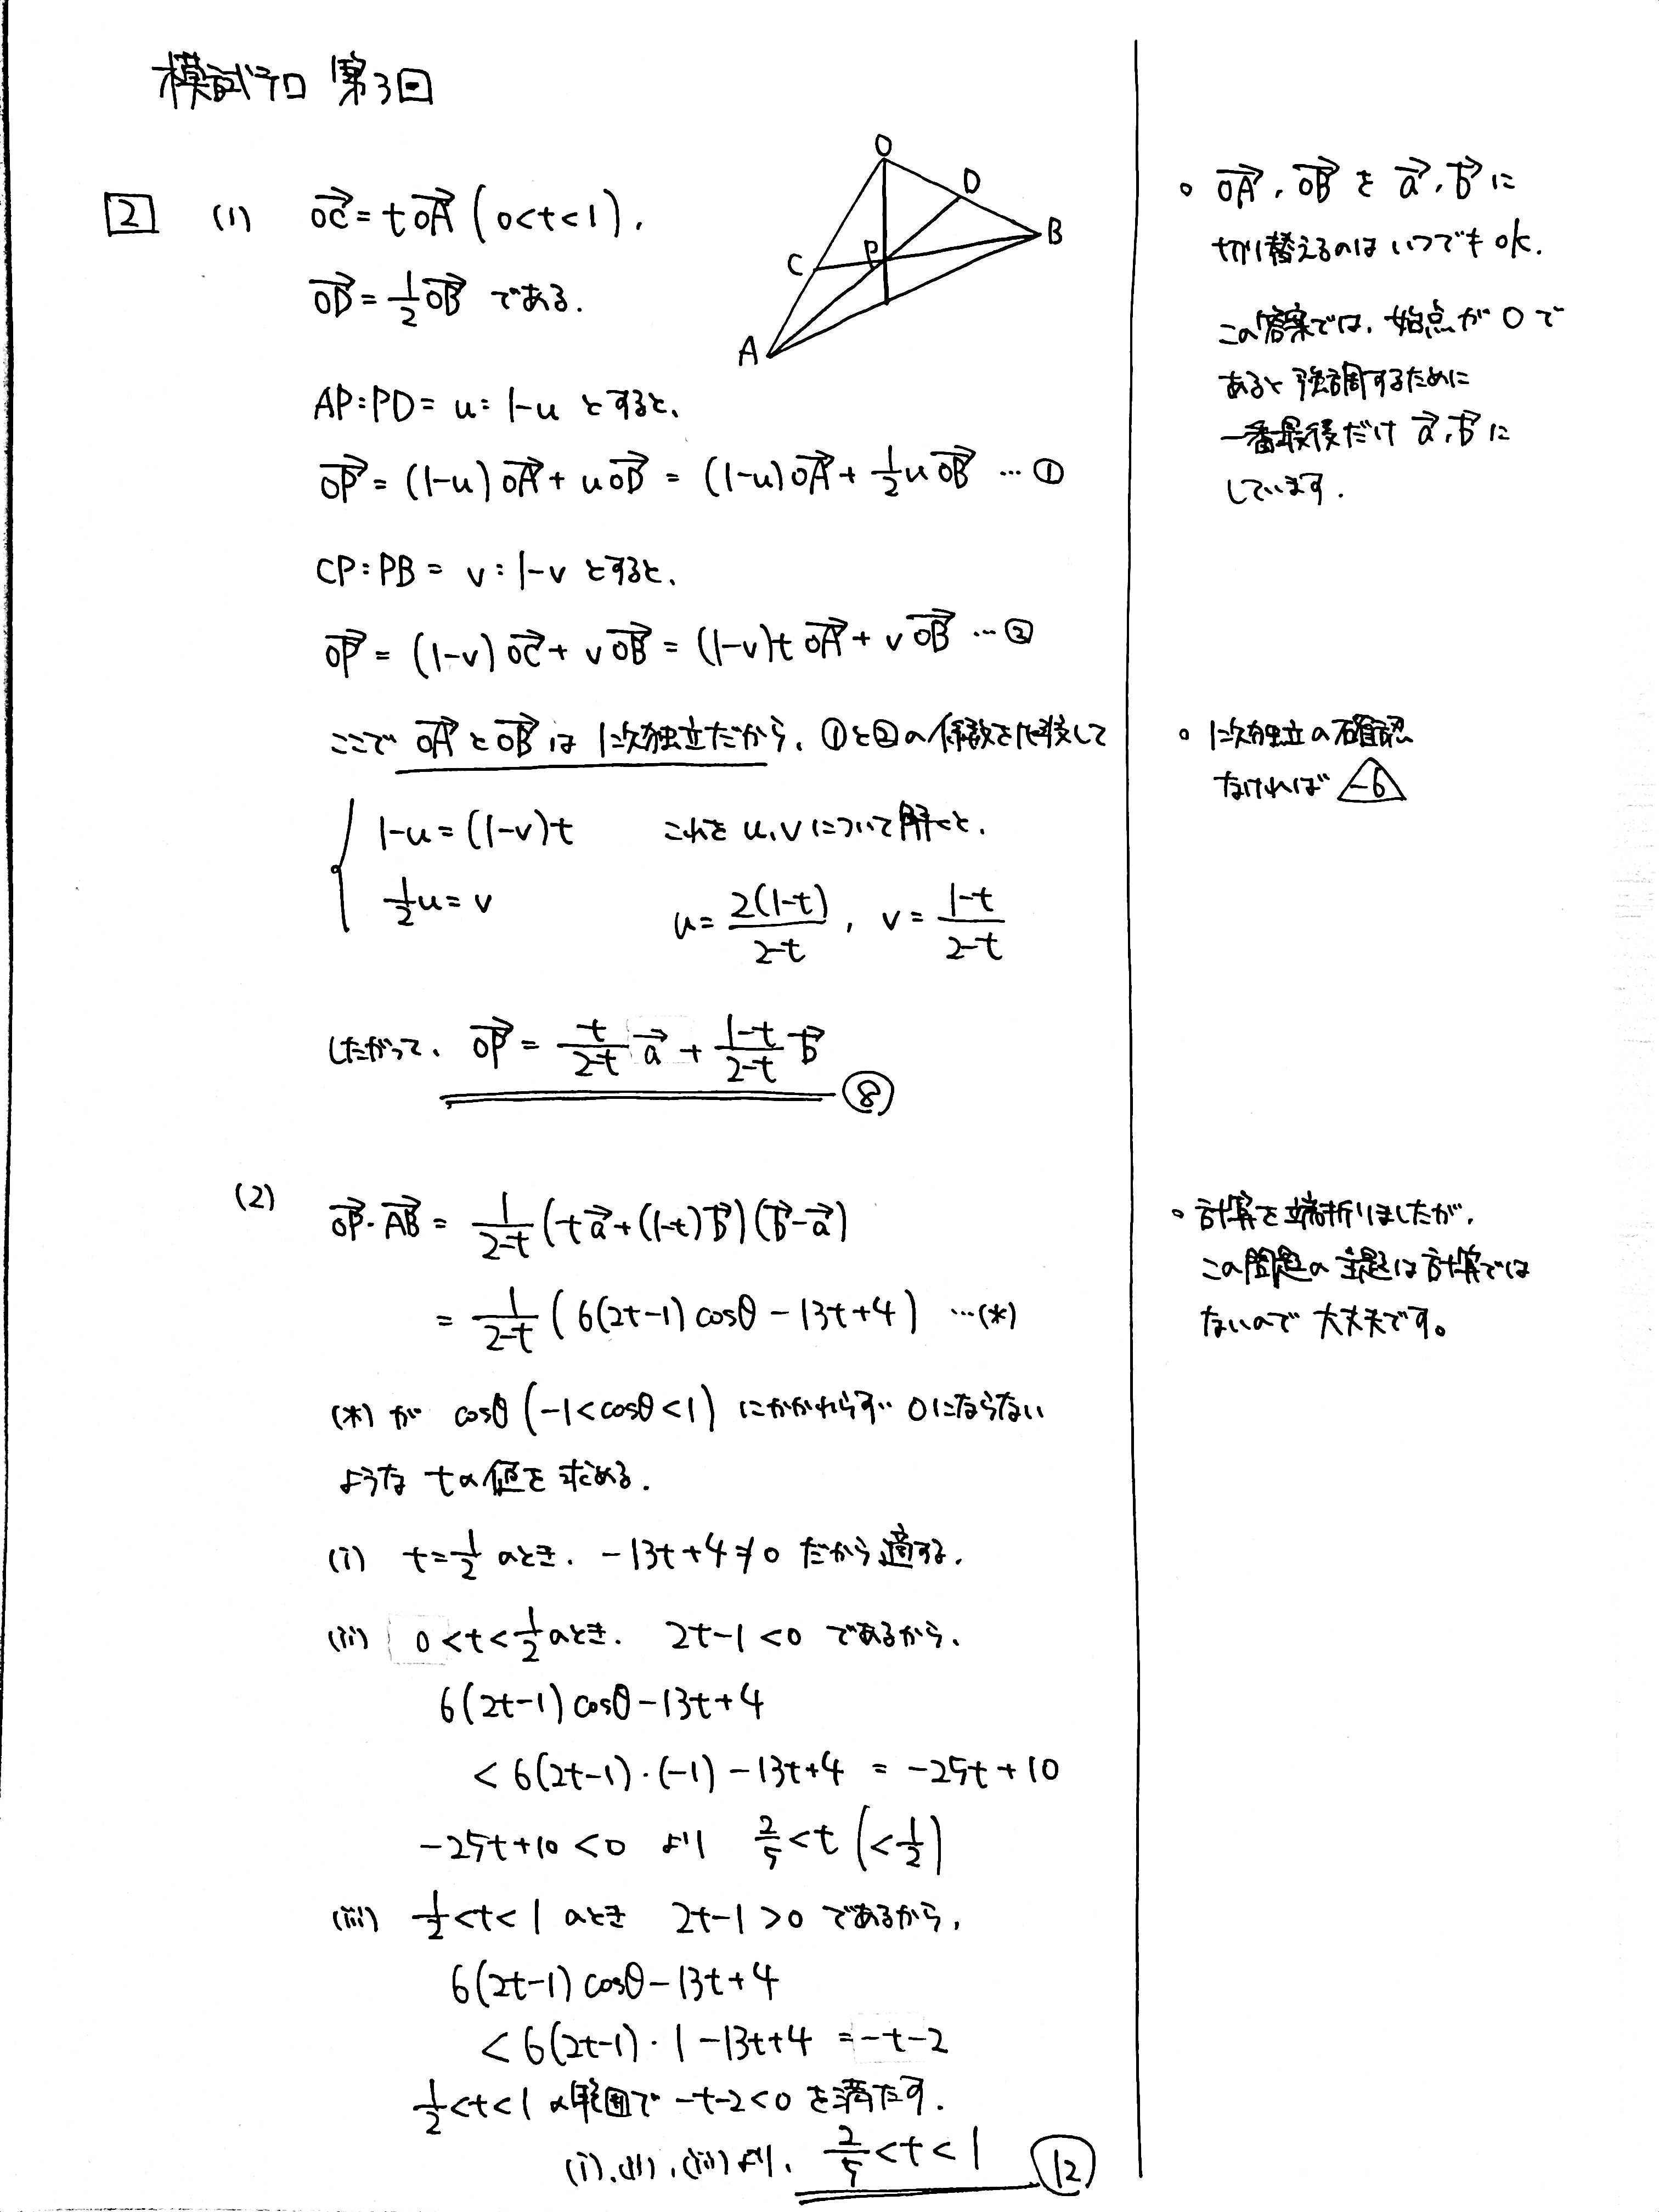 模試テロ 第3回
2 (1) →OC = t→OA (0<t<1),
→OD = 1/2 →OB である.
O
D
B
C
P
A
AP:PD = u:1-u とすると、
→OP = (1-u)→OA + u→OD = (1-u)→OA + 1/2 u→OB … ①
CP:PB = v:1-v とすると、
→OP = (1-v)→OC + v→OB = (1-v)t→OA + v→OB … ②
ここで →OA と →OB は 1次独立だから、①と②の係数を比較して
1-u = (1-v)t これを u,v について解くと、
1/2 u = v u = 2(1-t)/2-t , v = 1-t/2-t
したがって、→OP = t/2-t →a + 1-t/2-t →b ⑧
(2) →OP・→AB = 1/2-t (t→a + (1-t)→b)(→b-→a)
= 1/2-t (6(2t-1)cosθ - 13t+4) …(*)
(*) が cosθ (-1<cosθ<1) にかかわらず 0にならない
ような tの値を求める.
(i) t=1/2 のとき. -13t+4≠0 だから適する.
(ii) 0<t<1/2 のとき. 2t-1<0 であるから、
6(2t-1)cosθ-13t+4
< 6(2t-1)・(-1)-13t+4 = -25t+10
-25t+10<0 より 2/5<t (<1/2)
(iii) 1/2<t<1 のとき 2t-1>0 であるから,
6(2t-1)cosθ-13t+4
< 6(2t-1)・1-13t+4 = -t-2
1/2<t<1 の範囲で -t-2<0 を満たす.
(i),(ii),(iii)より、2/5<t<1 ⑫
。→OA, →OB を →a, →b に
切り替えるのは いつでも ok.
この答案では、始点が O で
あると強調するために
一番最後だけ →a, →b に
しています.
。1次独立の確認
なければ -6
。計算を端折りましたが、
この問題の主題は計算では
ないので 大丈夫です。